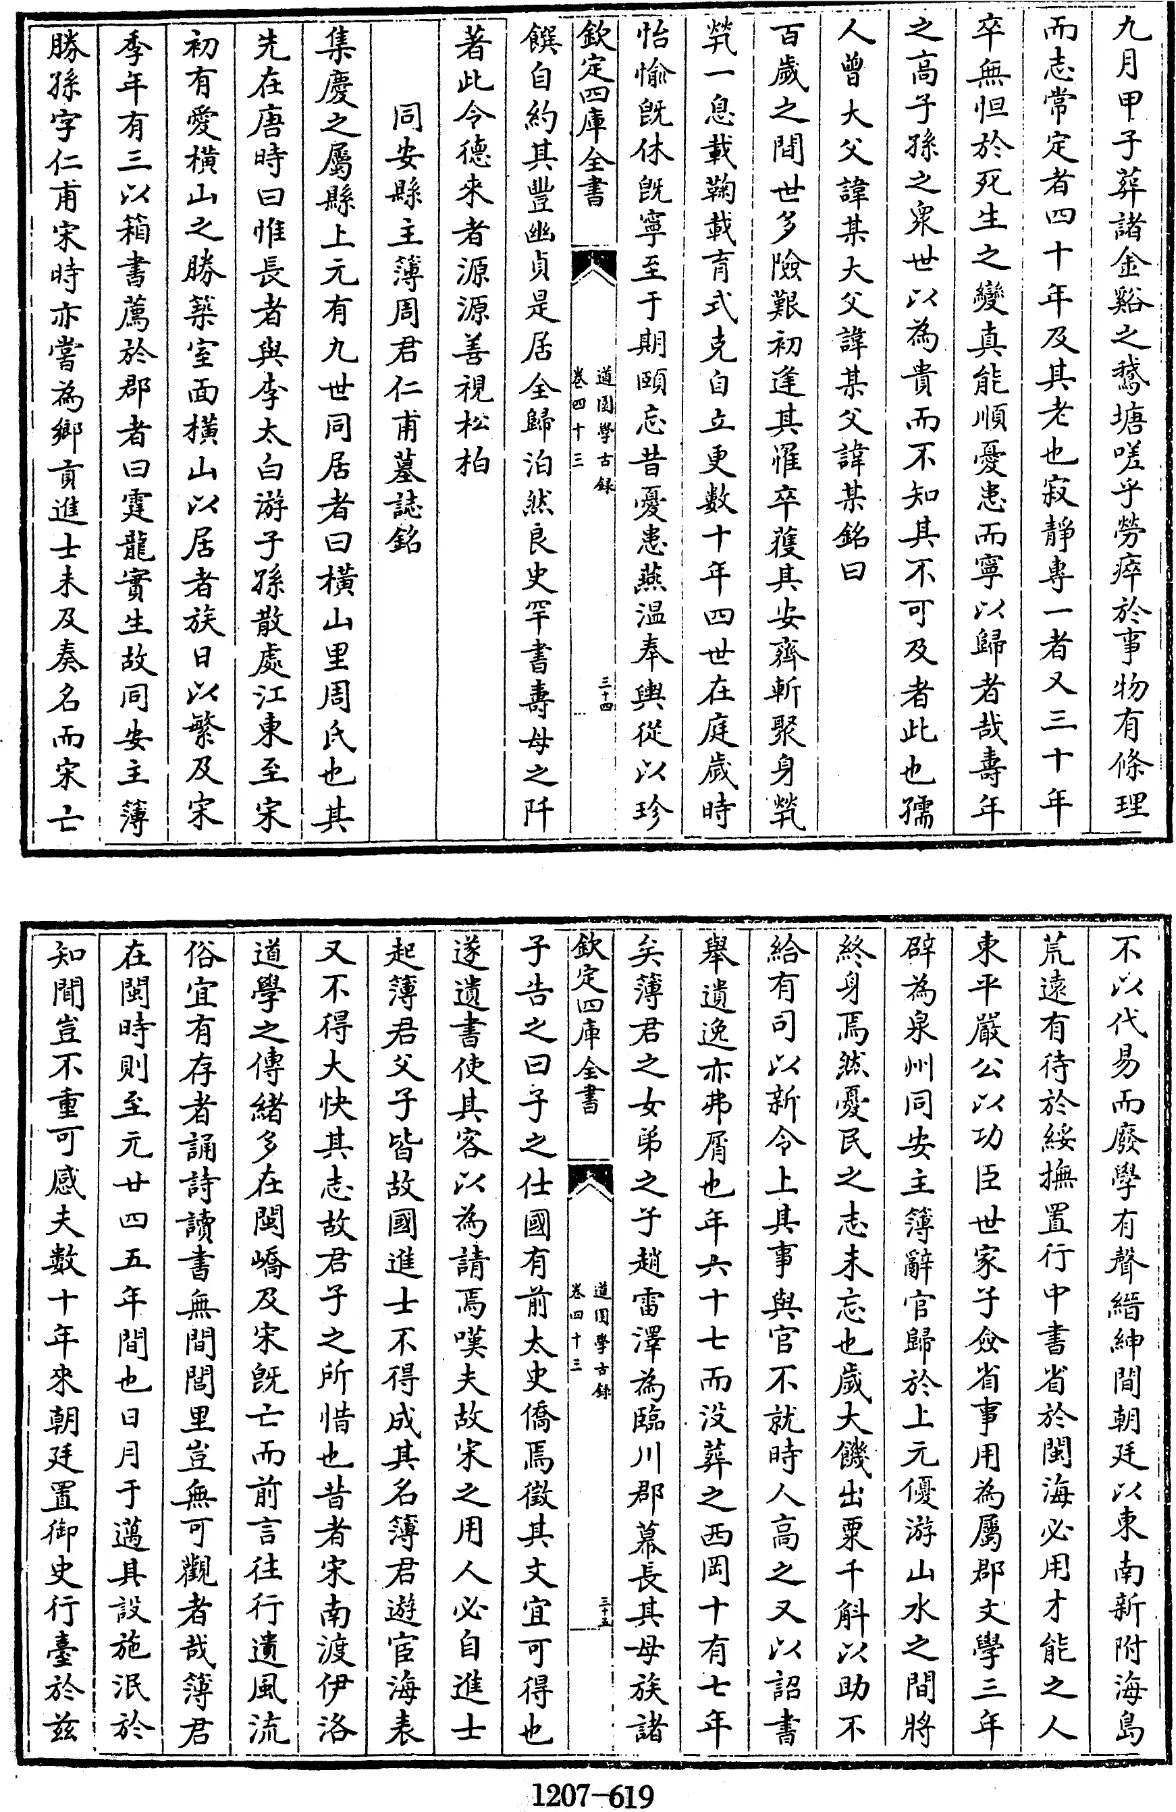 九月甲子葬諸金谿之鵞塘嗟乎勞瘁於事物有條理
而志常定者四十年及其老也寂靜專一者又三十年
卒無怛於死生之變真能順憂患而寧以歸者哉壽年
之高子孫之衆世以為貴而不知其不可及者此也孺
人曾大父諱某大父諱某父諱某銘曰
百歲之間世多險艱初逢其罹卒獲其安齊斬聚身煢
煢一息載鞠載育式克自立更數十年四世在庭歲時
怡愉旣休旣寧至于期頤忘昔憂患燕温奉輿從以珍
欽定四庫全書
道園學古録
卷四十三
三十四
饌自約其豐幽貞是居全歸泊然良史罕書壽母之阡
著此令德來者源源善視松柏
同安縣主簿周君仁甫墓誌銘
集慶之屬縣上元有九世同居者曰橫山里周氏也其
先在唐時曰惟長者與李太白游子孫散處江東至宋
初有愛橫山之勝築室面橫山以居者族日以繁及宋
季年有三以箱書薦於郡者曰霆龍實生故同安主簿
勝孫字仁甫宋時亦嘗為鄉貢進士未及奏名而宋亡
不以代易而廢學有聲縉紳間朝廷以東南新附海島
荒遠有待於綏撫置行中書省於閩海必用才能之人
東平嚴公以功臣世家子僉省事用為屬郡文學三年
辟為泉州同安主簿辭官歸於上元優游山水之間將
終身焉然憂民之志未忘也歲大饑出粟千斛以助不
給有司以新令上其事與官不就時人高之又以詔書
舉遺逸亦弗屑也年六十七而没葬之西岡十有七年
矣薄君之女弟之子趙雷澤為臨川郡幕長其母族諸
欽定四庫全書
道園學古録
卷四十三
三十五
子告之曰子之仕國有前太史僑焉徵其文宜可得也
遂遺書使其客以為請焉嘆夫故宋之用人必自進士
起簿君父子皆故國進士不得成其名簿君遊宦海表
又不得大快其志故君子之所惜也昔者宋南渡伊洛
道學之傳緒多在閩嶠及宋旣亡而前言往行遺風流
俗宜有存者誦詩讀書無間閭里豈無可觀者哉簿君
在閩時則至元廿四五年間也日月于邁其設施泯於
知聞豈不重可感夫數十年來朝廷置御史行臺於兹
1207-619